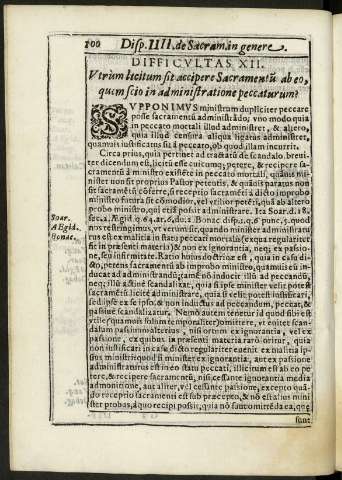 100 Disp. IIII. de Sacram. in genere.
DIFFICVLTAS XII.
Vtrùm licitum sit accipere Sacramentũ ab eo,
quem scio in administratione peccaturum?
SVPPONIMVS ministrum dupliciter peccare
posse sacramentũ administrãdo; vno modo quia
in peccato mortali illud administret, & altero,
quia illud censura aliqua ligatus administret,
quamuis iustificatus sit à peccato, ob quod illam incurrit.
Circa prius, quia pertinet ad tractatũ de scandalo, breui-
ter dicendum est, licitũ esse cuicumq; petere, & recipere sa-
cramentũ à ministro existẽte in peccato mortali, quãuis mi-
nister non sit proprius Pastor petentis, & quãuis paratus non
sit sacramẽtũ cõferre, si receptio sacramẽti à dicto improbo
ministro futura sit cõmodior, vel vtilior petẽti, quã ab altero
probo ministro, qui etiã possit administrare. Ita Soar. d. 18.
sec. 2. Ægid. q. 64. ar. 6. du. 2. Bonac. disp. 1. q. 6. punc. 5. quod
nos restringimus, vt verum sit, quando minister administratu-
rus est ex malitia in statu peccati mortalis (ex qua regularitèr
fit in presenti materia) & non ex ignorantia, neq; ex passio-
ne, seu infirmitate. Ratio huius doctrinæ est, quia in casu di-
cto, petens sacramentũ ab improbo ministro, quamuis eũ in-
ducat ad administrandũ; tamẽ nõ inducit illũ ad peccandũ,
neq; illũ actiuè scandalizat, quia si ipse minister velit potest
sacramẽtũ licitè administrare, quia si velit potest iustificari,
sed ipse ex se ipso, & non inductus ad peccandum, peccat, &
passiuè scandalizatur. Nemo autem tenetur id quod sibi est
vtile (quamuis solùm temporaliter) omittere, vt euitet scan-
dalum passiuum alterius, nisi ortum ex ignorantia, vel ex
passione, ex quibus in presenti materia rarò oritur, quia
non iustificari in casu dicto regulariter euenit ex malitia ip-
sius ministri; quod si minister ex ignorantia, aut ex passione
administraturus est in eo statu peccati, illicitum est ab eo pe-
tere, & recipere sacramentũ, nisi, cessante ignorantia media
admonitione, aut aliter, vel cessante passione, excepto quã-
do receptio sacramenti est sub præcepto, & nõ est alius mini-
ster probus, à quo recipi possit, quia nõ sunt omittẽda ea, quę
sunt
Soar.
Ægid.
Bonac.